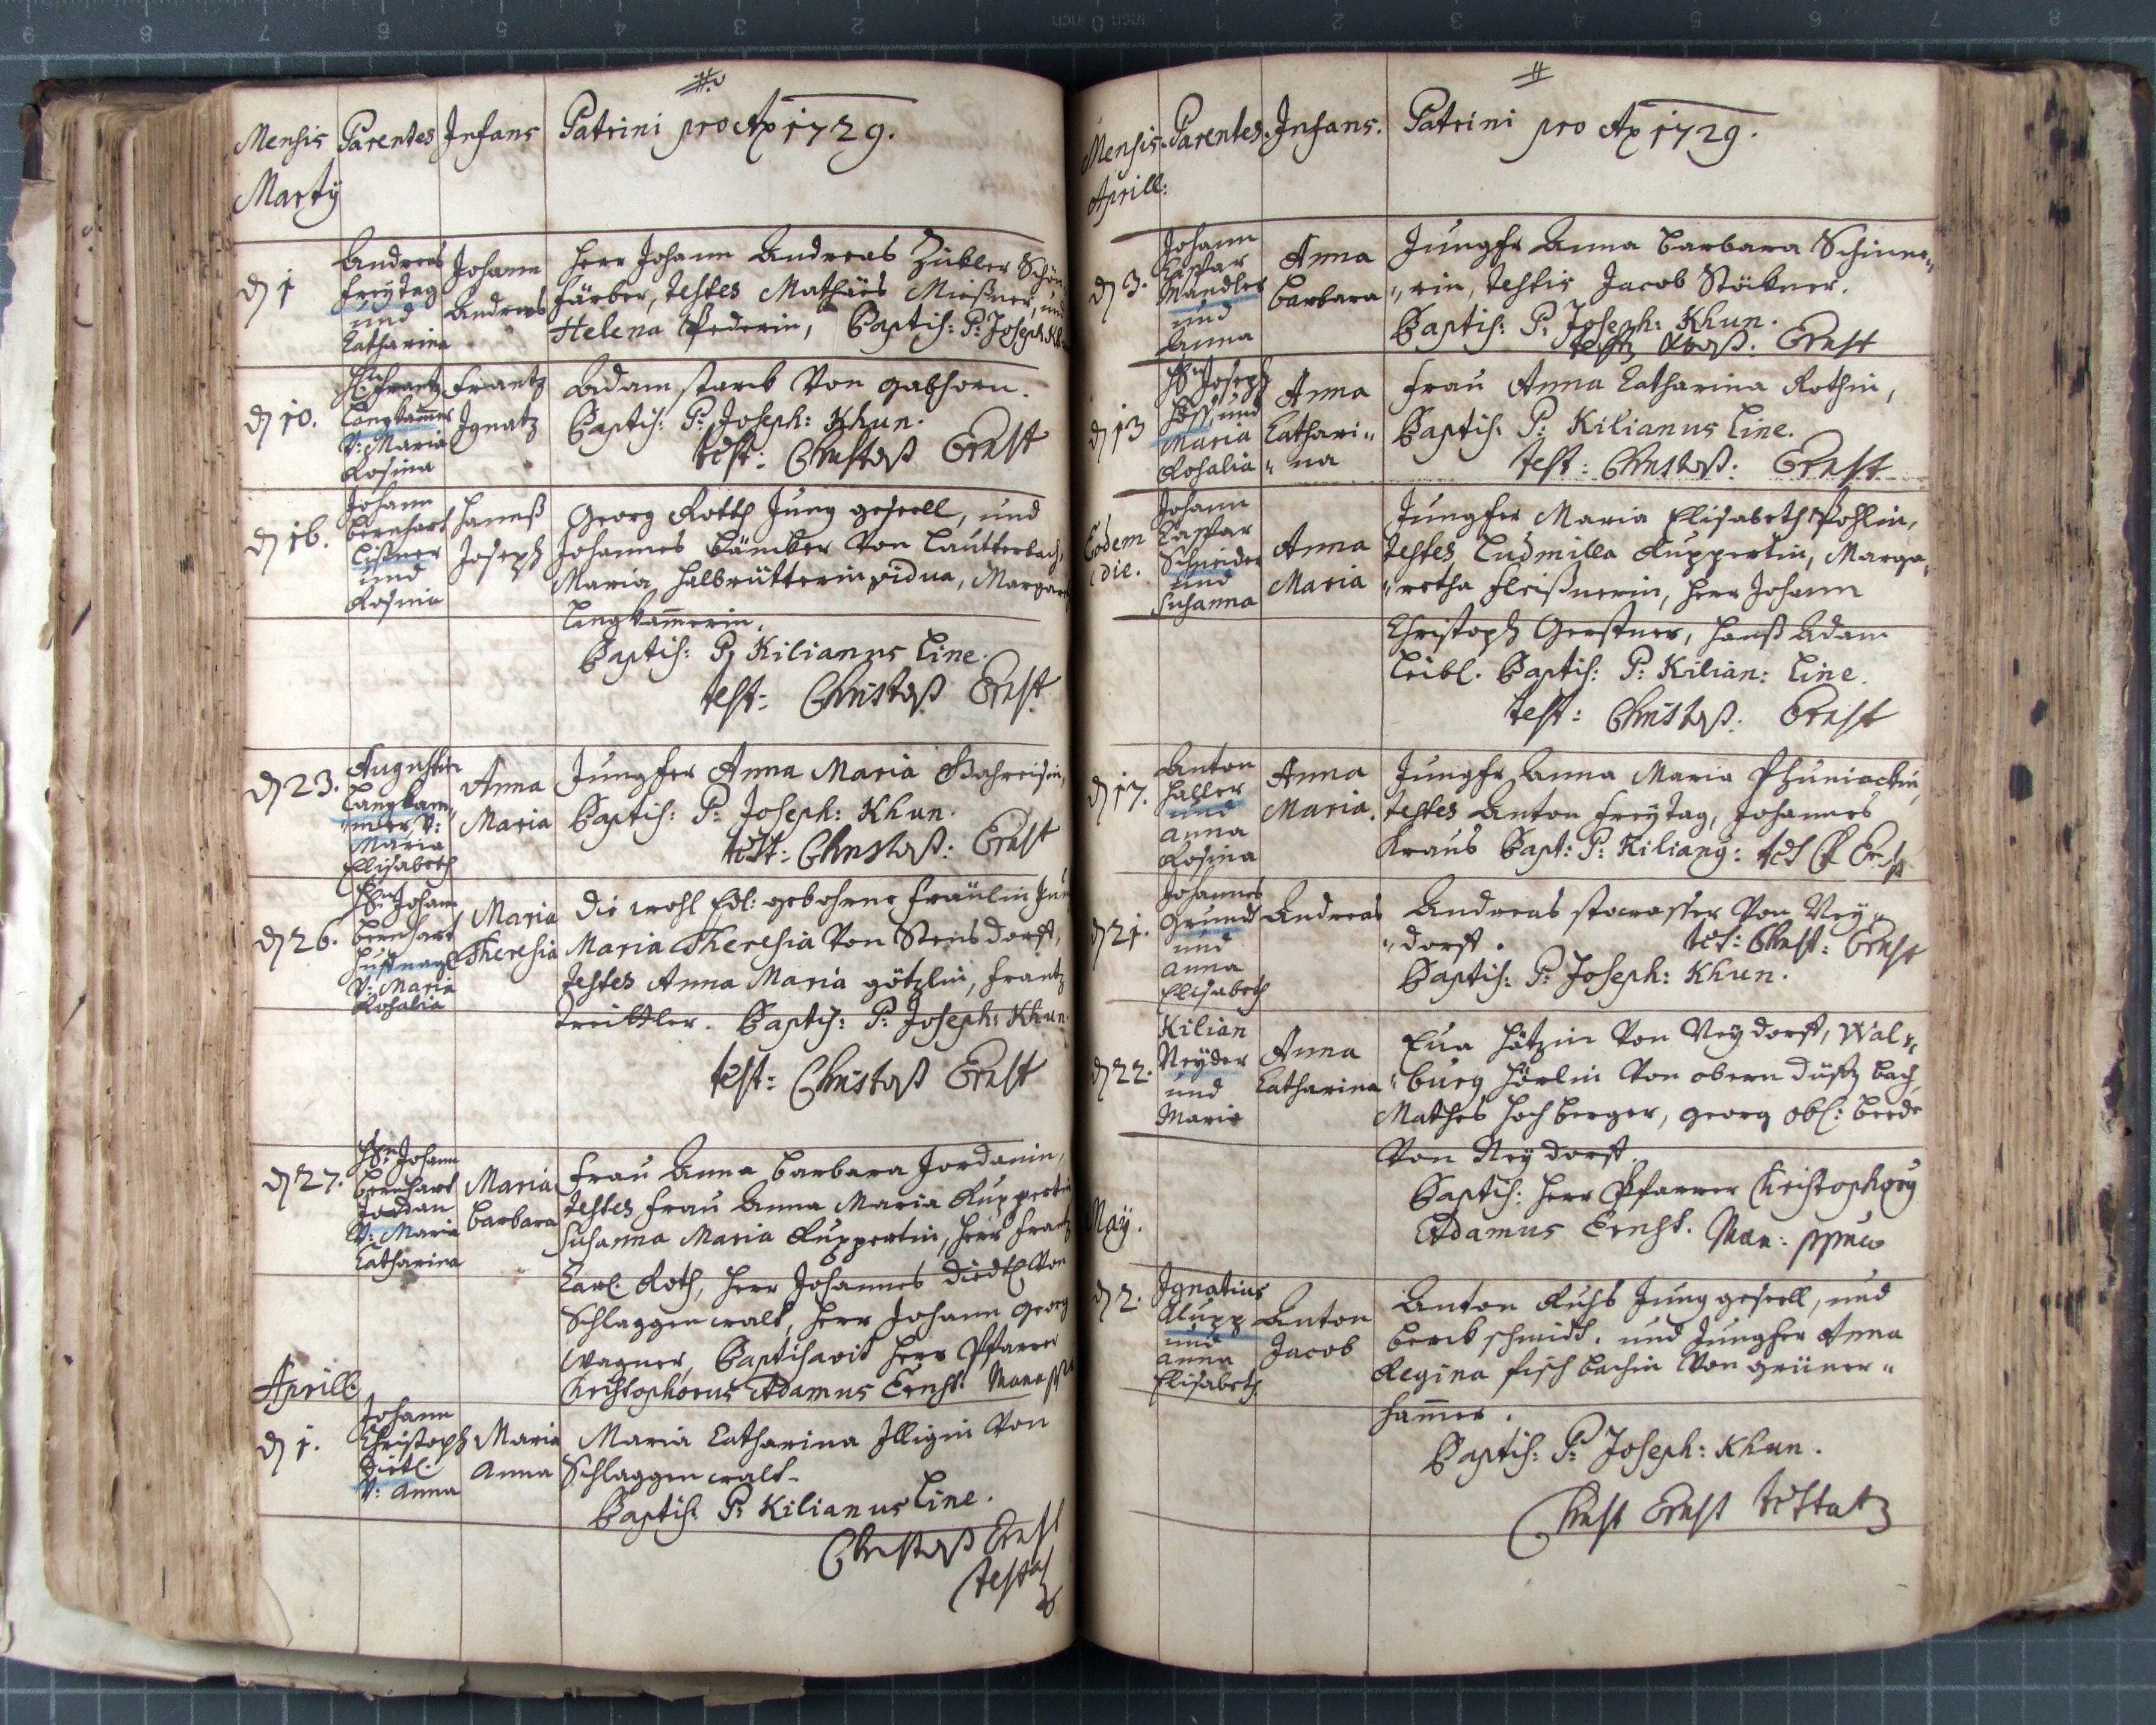 Mensis Parentes Infans Patrini pro Ao 1729.
Martÿ
d 1
Andreas
Freÿtag
und
Catharina
Johann
Andreas
Herr Johann Andreas Zickler Schön
färber, testes Mathäes Mießner, und
Helena Federin, Baptis: P: Joseph Kh
d 10.
H: Frantz
Langhamer
V: Maria
Rosina
Frantz
Ignatz
Adam starck Von gabhorn.
Baptis: P: Joseph: Khun.
test: Christoß Ernst
d 16.
Johann
bernhart
Lißner
und
Rosina
Hannß
Joseph
Georg Roth Jung gesell, und
Johannes Cämker Von Lautterbach,
Maria halbrütterin vidua, Margar
Linghamerin.
Baptis: P: Kilianus Line.
test: Christoß Ernst
d 23.
Augustin
Langham„
„mer, V:
Maria
Elisabeth
Anna
Maria
Jungfer Anna Maria Bahreisin,
Baptis: P: Joseph: Khun.
test: Christoß: Ernst
d 26.
H: Johann
bernhart
Hußnagl
V: Maria
Rosalia
Maria
Theresia
Die wohl Edl: gebohrne Fräülin Jun
Maria Theresia Von Steinsdorff,
testes Anna Maria götzlin, Frantz
Treittler. Baptis: P: Joseph: Khun.
test: Christoß Ernst
d 27.
H: Johann
bernhart
Jordan
V: Maria
Catharina
Maria
barbara
Frau Anna barbara Jordanin,
testes Frau Anna Maria Ruppertin
Susanna Maria Ruppertin, Herr Frantz
Carl Roth, Herr Johannes Diedl Von
Schlaggenwalt, Herr Johann Georg
Wagner, Baptisavit Herr Pfarrer
Christophorus Adamus Ernst.
Aprill
d 1.
Johann
Christoph
Dietl.
V: Anna
Maria
Anna
Maria Catharina Illigin Von
Schlaggenwalt.
Baptis: P: Kilianus Line.
Christoß Ernst
Mensis. Parentes. Infans. Patrini pro Ao 1729.
Aprill:
d 3.
Johann
Caspar
Mandler
und
Anna
Anna
barbara
Jungfr Anna barbara Schinn„
„rin, testis Jacob Stöckner.
Baptis: P: Joseph: Khun.
Ernst
d 13
H: Joseph
Höss und
Maria
Rosalia
Anna
Cathari„
„na
Frau Anna Catharina Rothin,
Baptis: P: Kilianus Line.
test: Christoß: Ernst
Eodem
die.
Johann
Caspar
Schneider
und
Susanna
Anna
Maria
Jungfer Maria Elisabeth Pohlin,
testes Ludmilla Ruppertin, Marga„
„retha Fleissnerin, Herr Johann
Christoph Gerstner, Hanß Adam
Leibl. Baptis: P: Kilian: Line.
test: Christoß: Ernst
d 17.
Anton
Haller
und
Anna
Rosina
Anna
Maria.
Jungfr Anna Maria
testes Anton Freÿtag, Johannes
Kraus Bapt: P: Kilian9:
d 21.
Johannes
Grundt
und
Anna
Elisabeth
Andreas
Andreas Von Neÿ„
„dorff. test: Christ: Ernst
Baptis: P: Joseph: Khun.
d 22.
Kilian
Neÿder
und
Maria
Anna
Catharina
Eua Hätzin Von Neÿdorff, Wal„
„burg Hörlin Von obern
Mathes Hochberger, Georg Obl: beede
Von Neÿdorff.
Baptis: Herr Pfarrer Christophorus
Adamus Ernst. Man: ppria
Maÿ.
d 2.
Ignatius
Klupp
und
Anna
Elisabeth
Anton
Jacob
Anton Ruß Jung gesell, und
berckschmidt. und Jungfer Anna
Regina Fischbachin Von grüner„
hamer.
Baptis: P: Joseph: Khun.
Christ Ernst